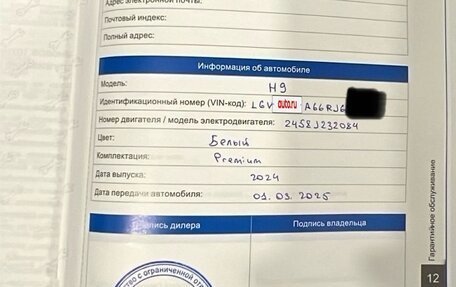 Адрес электронной почты:
Почтовый индекс:
Полный адрес:
Информация об автомобиле
Модель: H9
Идентификационный номер (VIN-код): LGV auto.ru A66RJ6
Номер двигателя / модель электродвигателя: 2458J232084
Цвет: Белый
Комплектация: Premium
Дата выпуска: 2024
Дата передачи автомобиля: 01.03.2025
Подпись дилера
Подпись владельца
с ограниченной
Гарантийное обслуживание
12